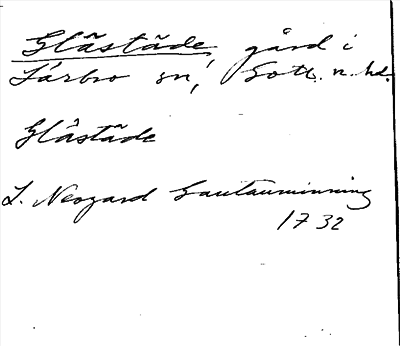 Glästäde, gård i
Lärbro sn, Gotl. n. hd.
Glästäde
L. Neogard Gautauminning
1732